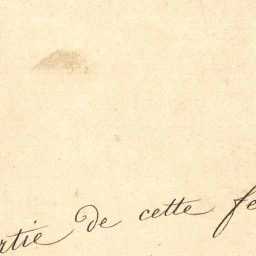 rtie de cette fe